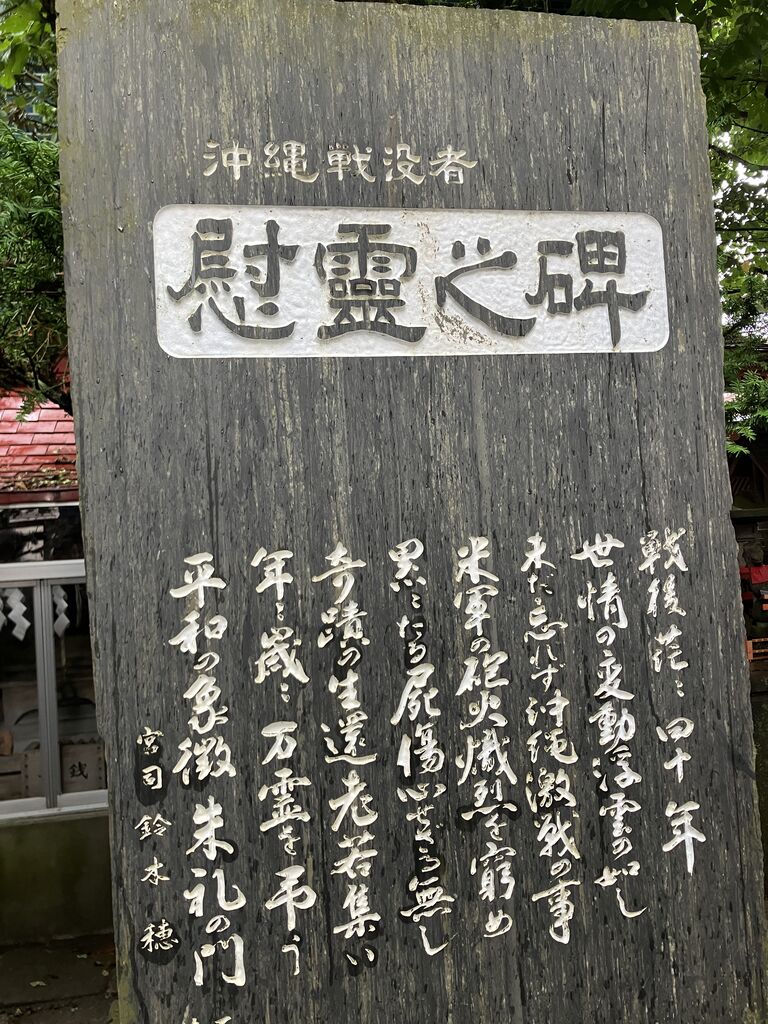 沖縄戦没者
慰霊之碑
戦後茫〻四十年
世情の変動浮雲の如し
未だ忘れず沖縄激戦の事
米軍の砲火熾烈を窮め
累〻たる屍傷心せざる無し
奇蹟の生還老若集い
年〻歳〻万霊を弔う
平和の象徴朱礼の門
宮司鈴木穂
銭